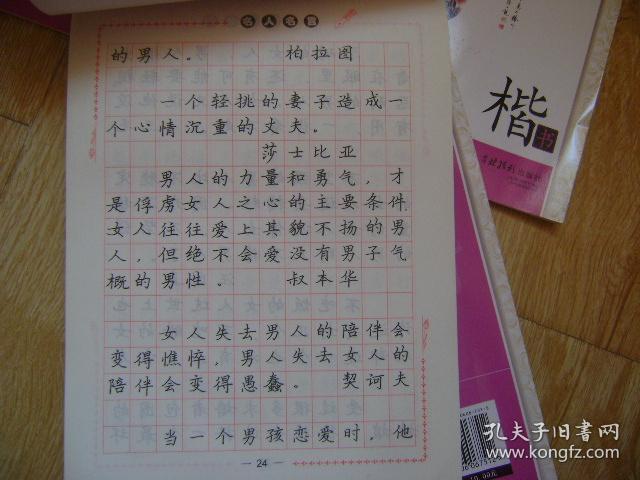 名人名言
的男人。 柏拉图
一个轻挑的妻子造成一
个心情沉重的丈夫。
莎士比亚
男人的力量和勇气，才
是俘虏女人之心的主要条件.
女人往往爱上其貌不扬的男
人，但绝不会爱没有男子气
概的男性。 叔本华
女人失去男人的陪伴会
变得憔悴，男人失去女人的
陪伴会变得愚蠢。 契诃夫
当一个男孩恋爱时，他
— 24 —
楷
书
出版社
孔夫子旧书网